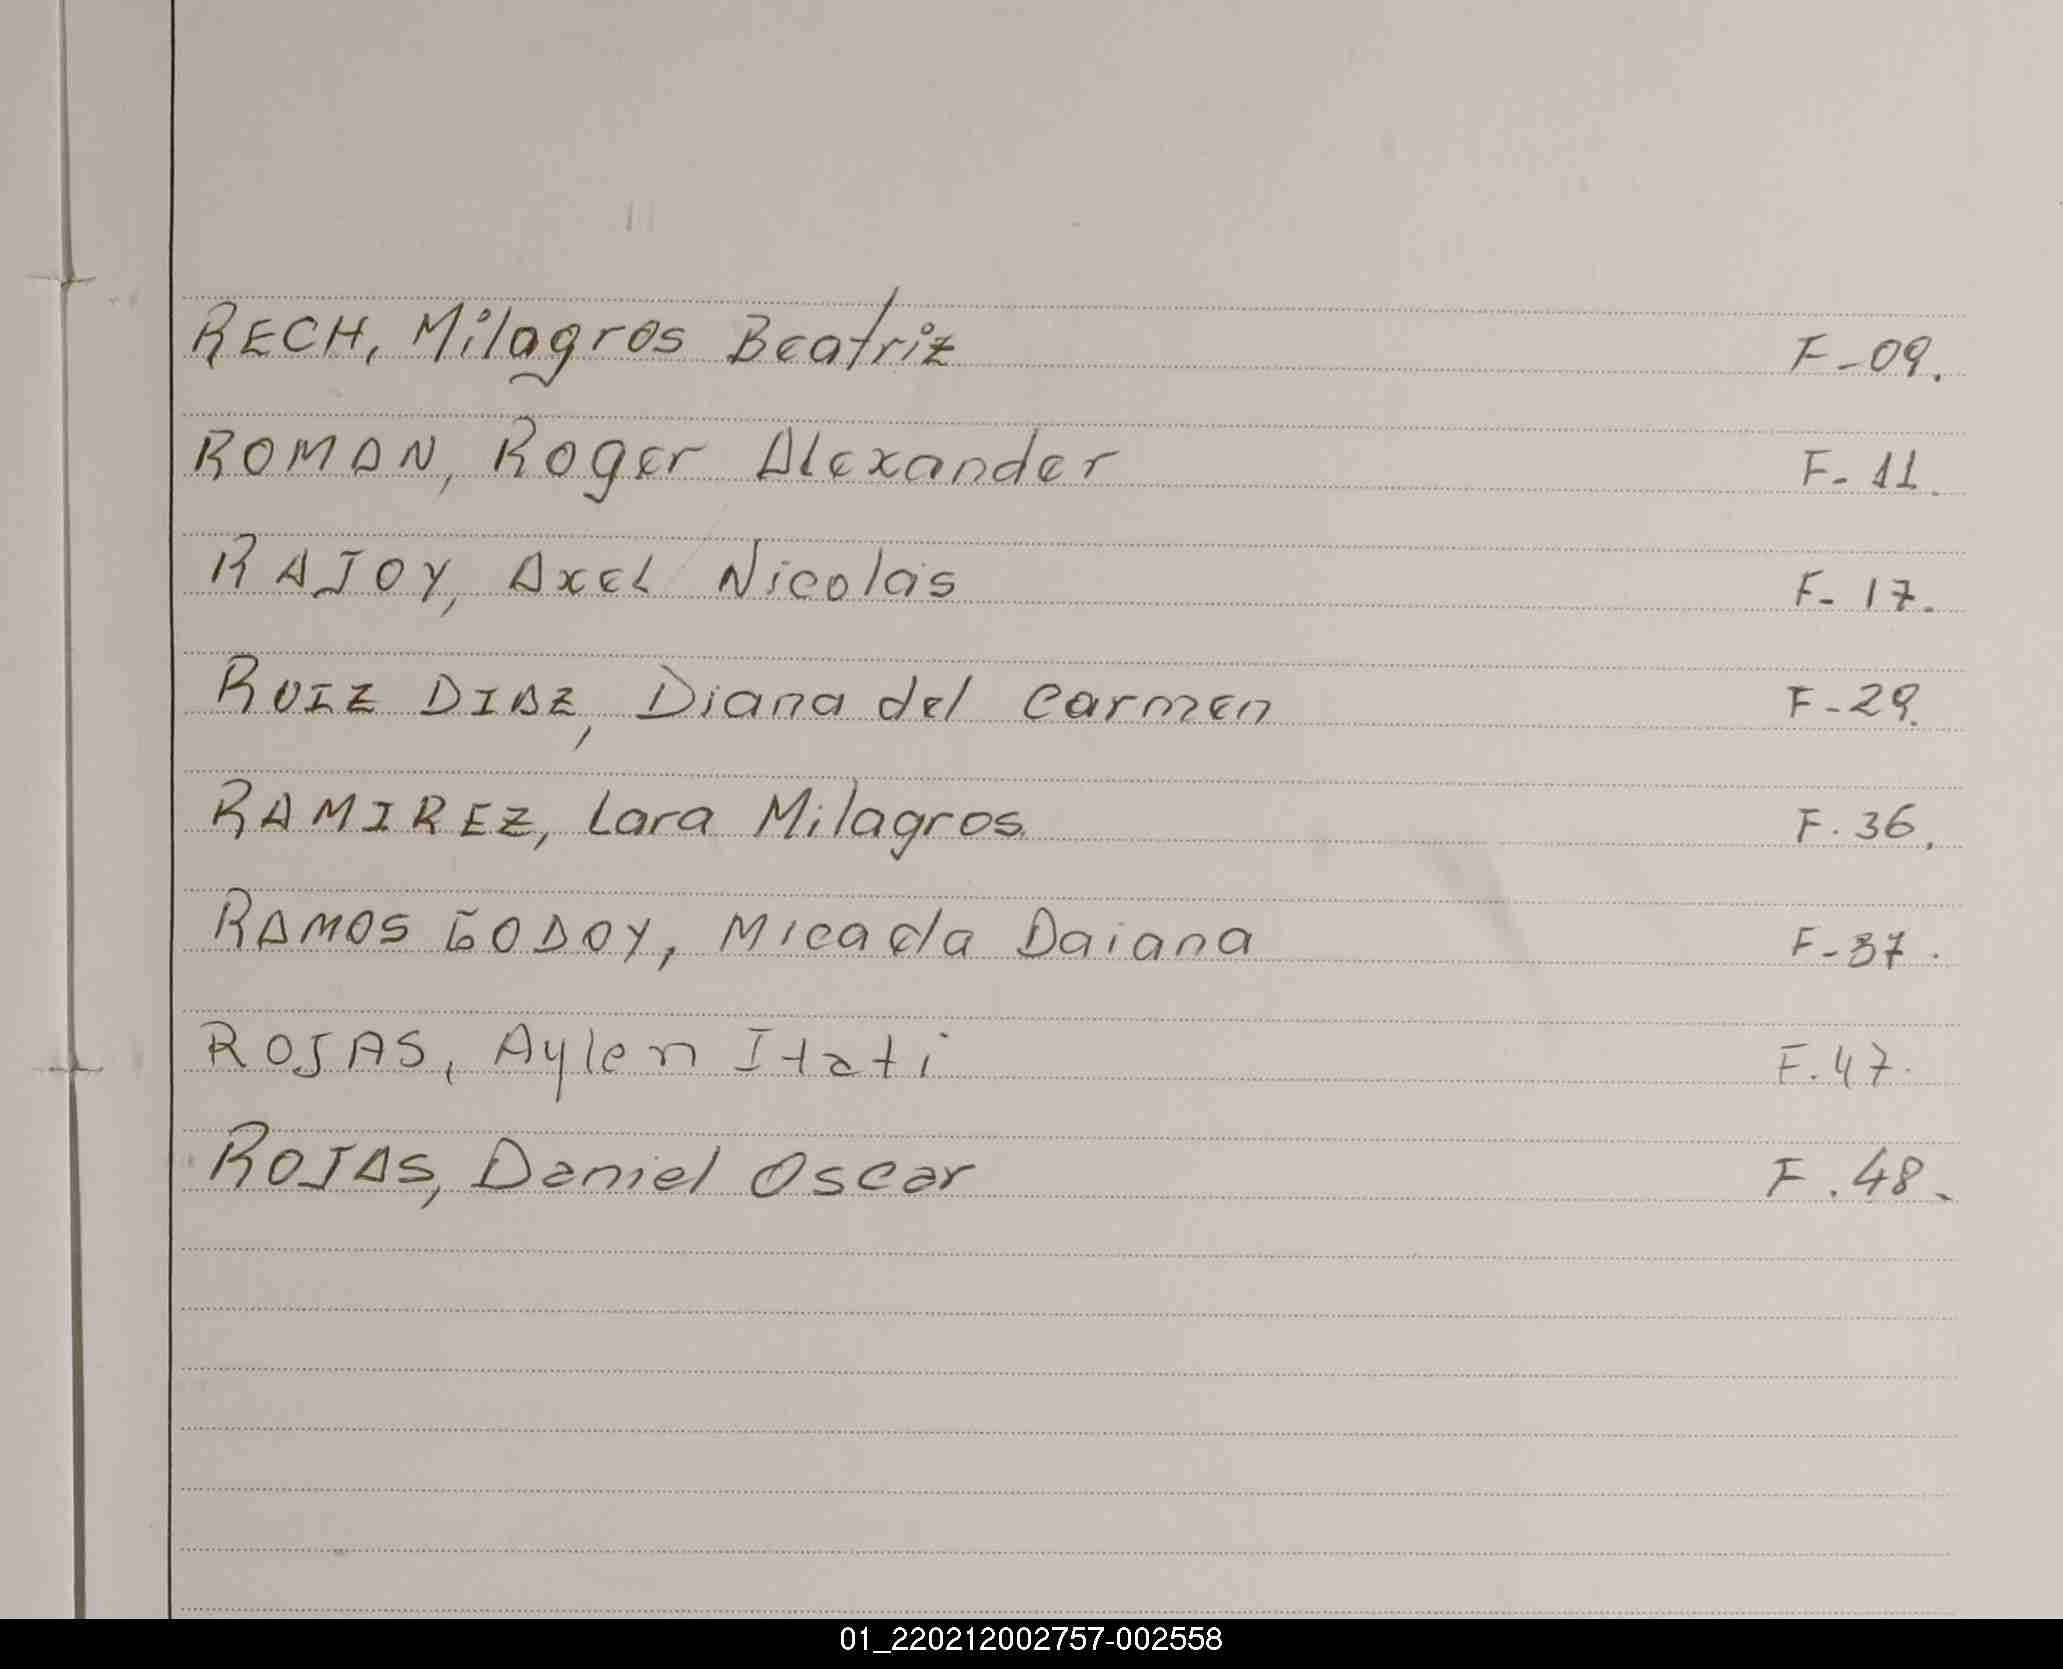 RECH, Milagros Beatriz F-09.
ROMAN, Roger Alexander F-11.
RAJOY, Axel Nicolás F-17.
RUIZ DIAZ, Diana del Carmen F-29.
RAMIREZ, Lara Milagros F.36.
RAMOS GODOY, Micaela Daiana F-37.
ROJAS, Aylen Itati F.47.
ROJAS, Daniel Oscar F.48.
01_220212002757-002558